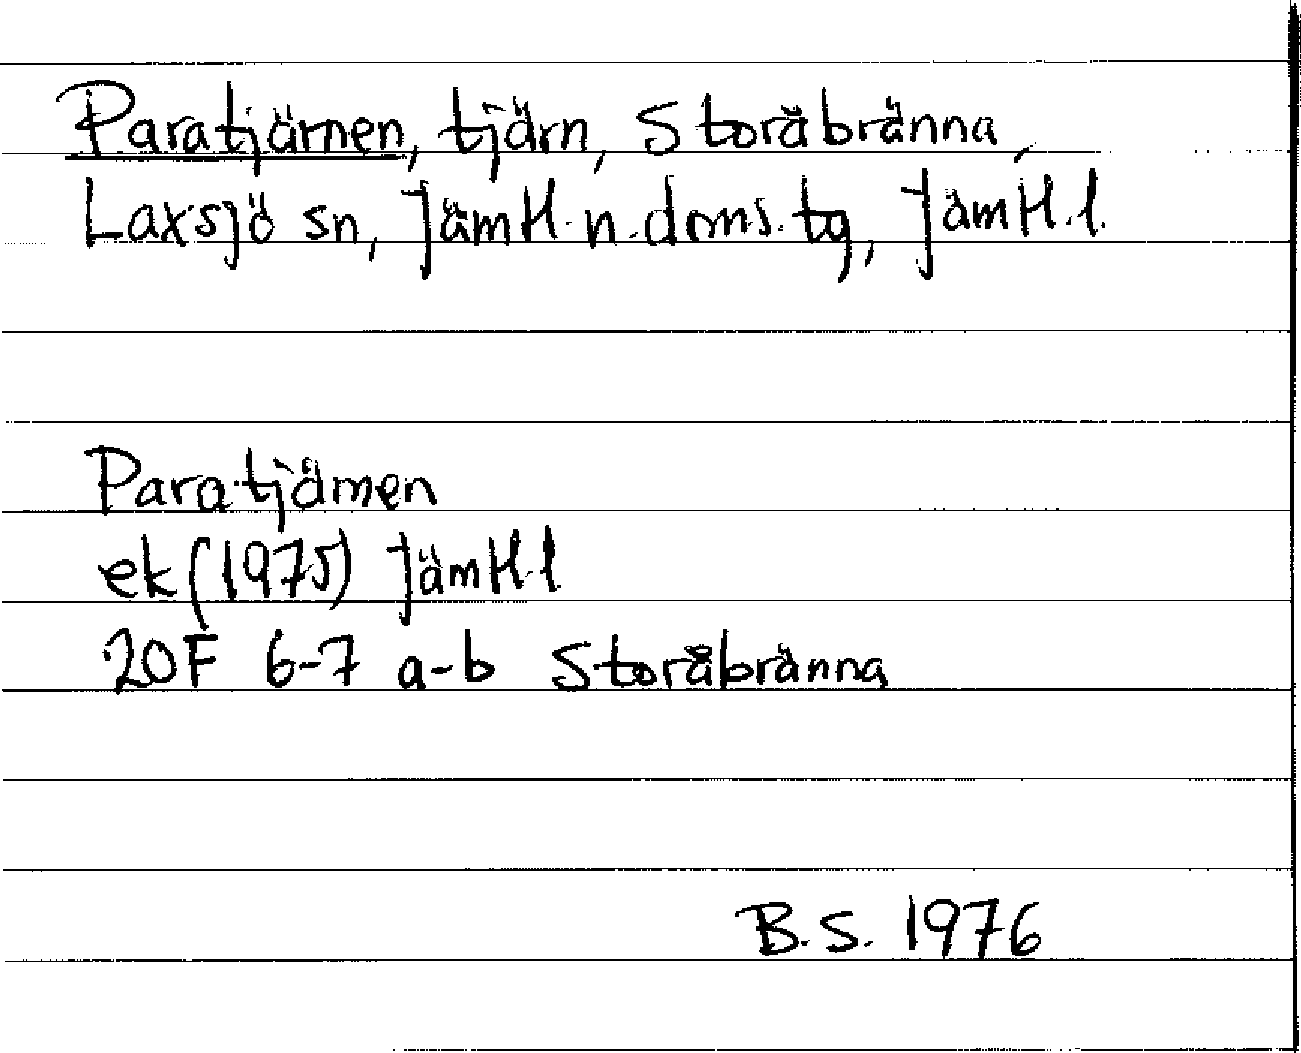 Paratjärnen, tjärn, Storåbränna,
Laxsjö sn, Jämtl. n. doms. tg, Jämtl. l.
Paratjärnen
ek (1975) Jämtl. l
20F 6-7 a-b Storåbränna
B.S. 1976